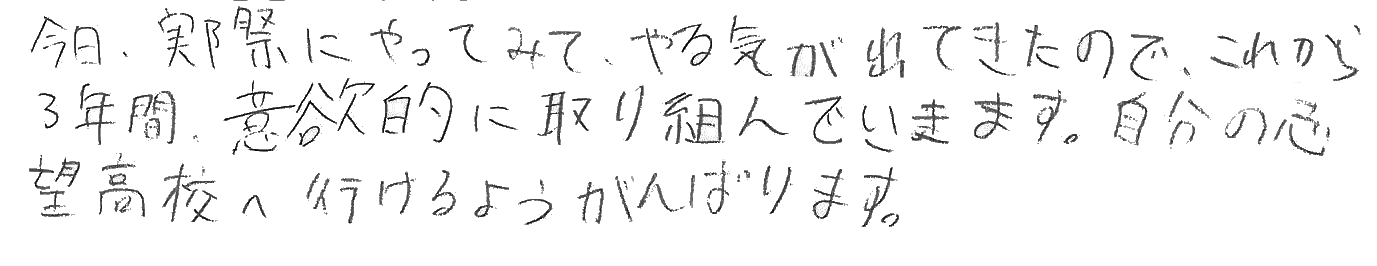 今日、実際にやってみて、やる気が出てきたので、これから
3年間、意欲的に取り組んでいきます。自分の志
望高校へ行けるようがんばります。